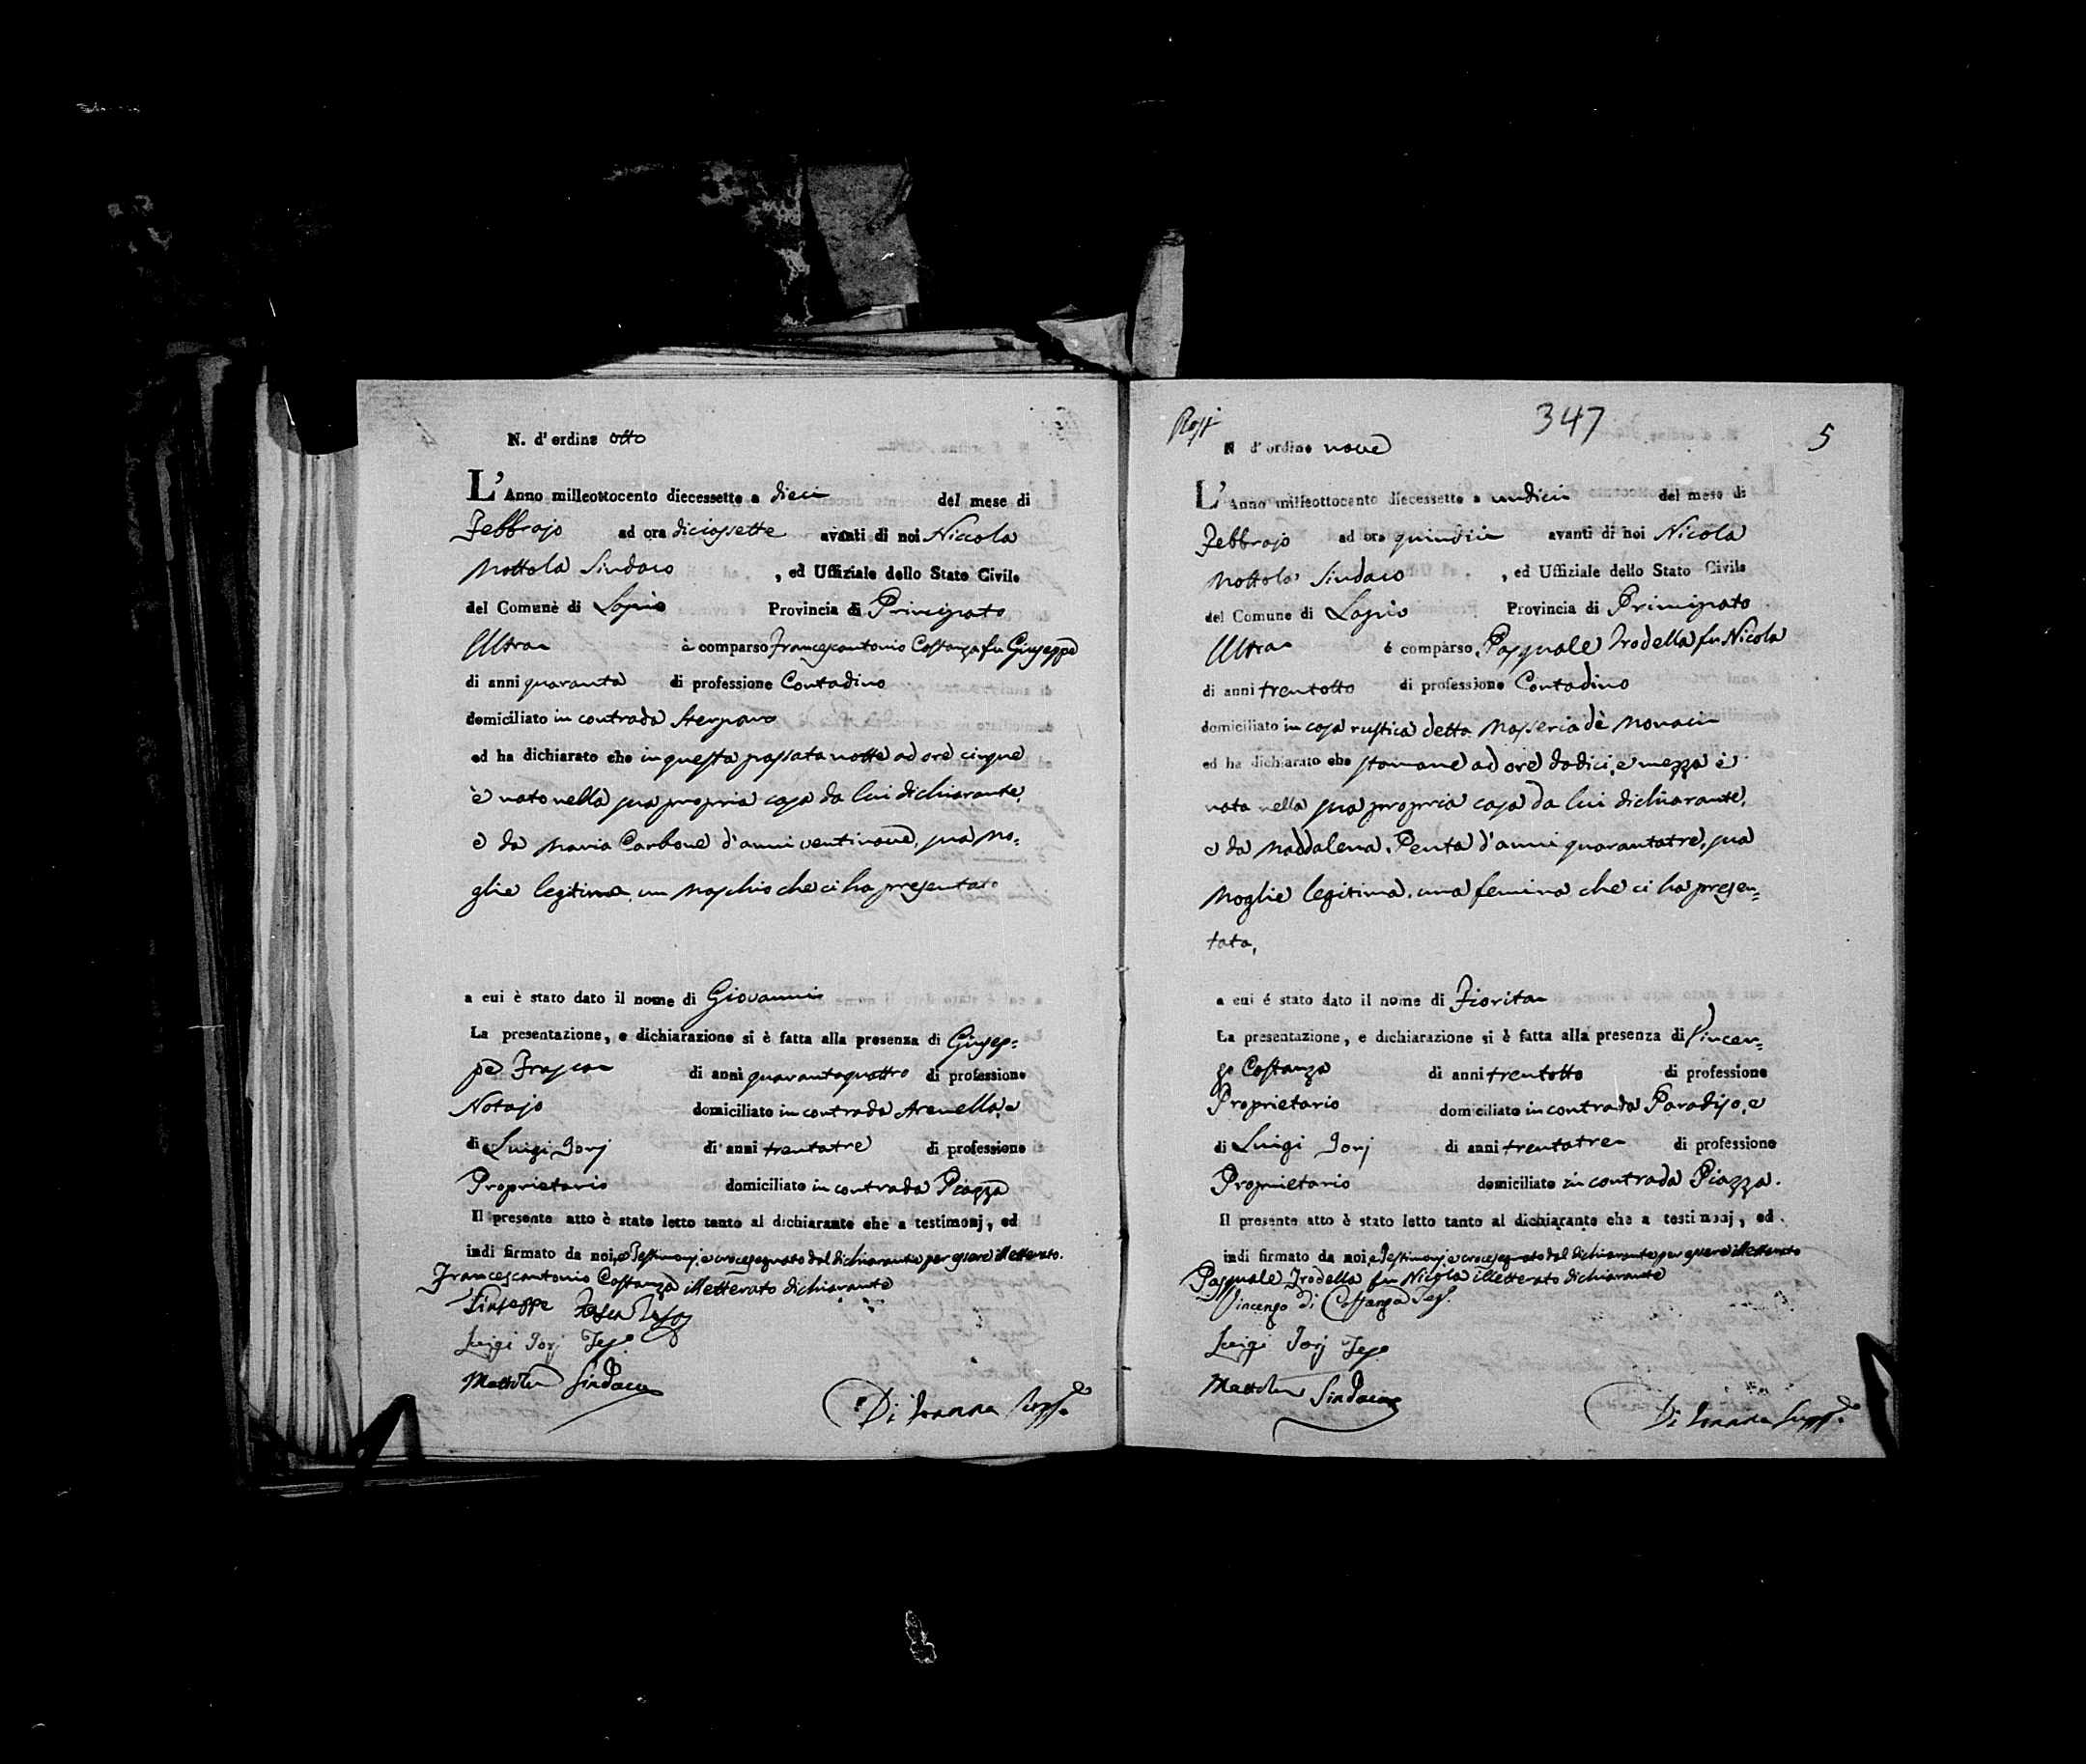 N. d'ordine otto
L'Anno milleottocento diecessette a dieci del mese di
Febbrajo ad ora diciassette avanti di noi Niccola
Mottola Sindaco , ed Uffiziale dello Stato Civile
del Comune di Lapio Provincia di Principato
Ultra è comparso Francescantonio Costanza fu Giuseppe
di anni quaranta di professione Contadino
domiciliato in contrada Sterparo
ed ha dichiarato che in questa passata notte ad ore cinque
è nato nella sua propria casa da lui dichiarante,
e da Maria Carbone d'anni ventinove, sua Mo=
glie legitima, un Maschio che ci ha presentato
a cui è stato dato il nome di Giovanni
La presentazione, e dichiarazione si è fatta alla presenza di Giusep=
pe di anni quarantaquattro di professione
Notajo domiciliato in contrada Arenella, e
di Luigi Jorj di anni trentatre di professione
Proprietario domiciliato in contrada Piazza
Il presente atto è stato letto tanto al dichiarante che a testimonj, ed
indi firmato da noi, e Testimonj, e crocesegnato dal dichiarante per essere illetterato.
Francescantonio Costanza illetterato dichiarante
Giuseppe
Luigi Jorj Teso
Mottola Sindaco
Di
Ross
347
5
N d'ordine nove
L'Anno milleottocento diecessette a undici del mese di
Febbrajo ad ora quindici avanti di noi Nicola
Mottola Sindaco , ed Uffiziale dello Stato Civile
del Comune di Lapio Provincia di Principato
Ultra é comparso Pasquale Trodella fu Nicola
di anni trentotto di professione Contadino
domiciliato in casa rustica detta Masseria dè Monaci
ed ha dichiarato che stamane ad ore dodici, e mezza è
nata nella sua propria casa da lui dichiarante,
e da Maddalena Penta d'anni quarantatre, sua
Moglie legitima, una femina che ci ha presen=
tata,
a cui é stato dato il nome di Fiorita
La presentazione, e dichiarazione si è fatta alla presenza di Vincen=
zo Costanza di anni trentotto di professione
Proprietario domiciliato in contrada Paradiso, e
di Luigi Jorj di anni trentatre di professione
Proprietario domiciliato in contrada Piazza.
Il presente atto è stato letto tanto al dichiarante che a testimonj, ed
indi firmato da noi, e Testimonj, e crocesegnato dal dichiarante per essere illetterato
Pasquale Trodella fu Nicola illetterato dichiarante
Vincenzo di Costanza Tes.
Luigi Jorj Teso
Mottola Sindaco
Di